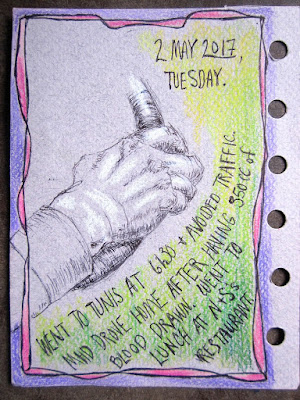 2 MAY 2017,
TUESDAY.
WENT TO TUNIS AT 6H30 + AVOIDED TRAFFIC.
AND DROVE HOME AFTER HAVING of
BLOOD DRAWN. WENT TO
LUNCH AT N+S's
RESTAURANT!